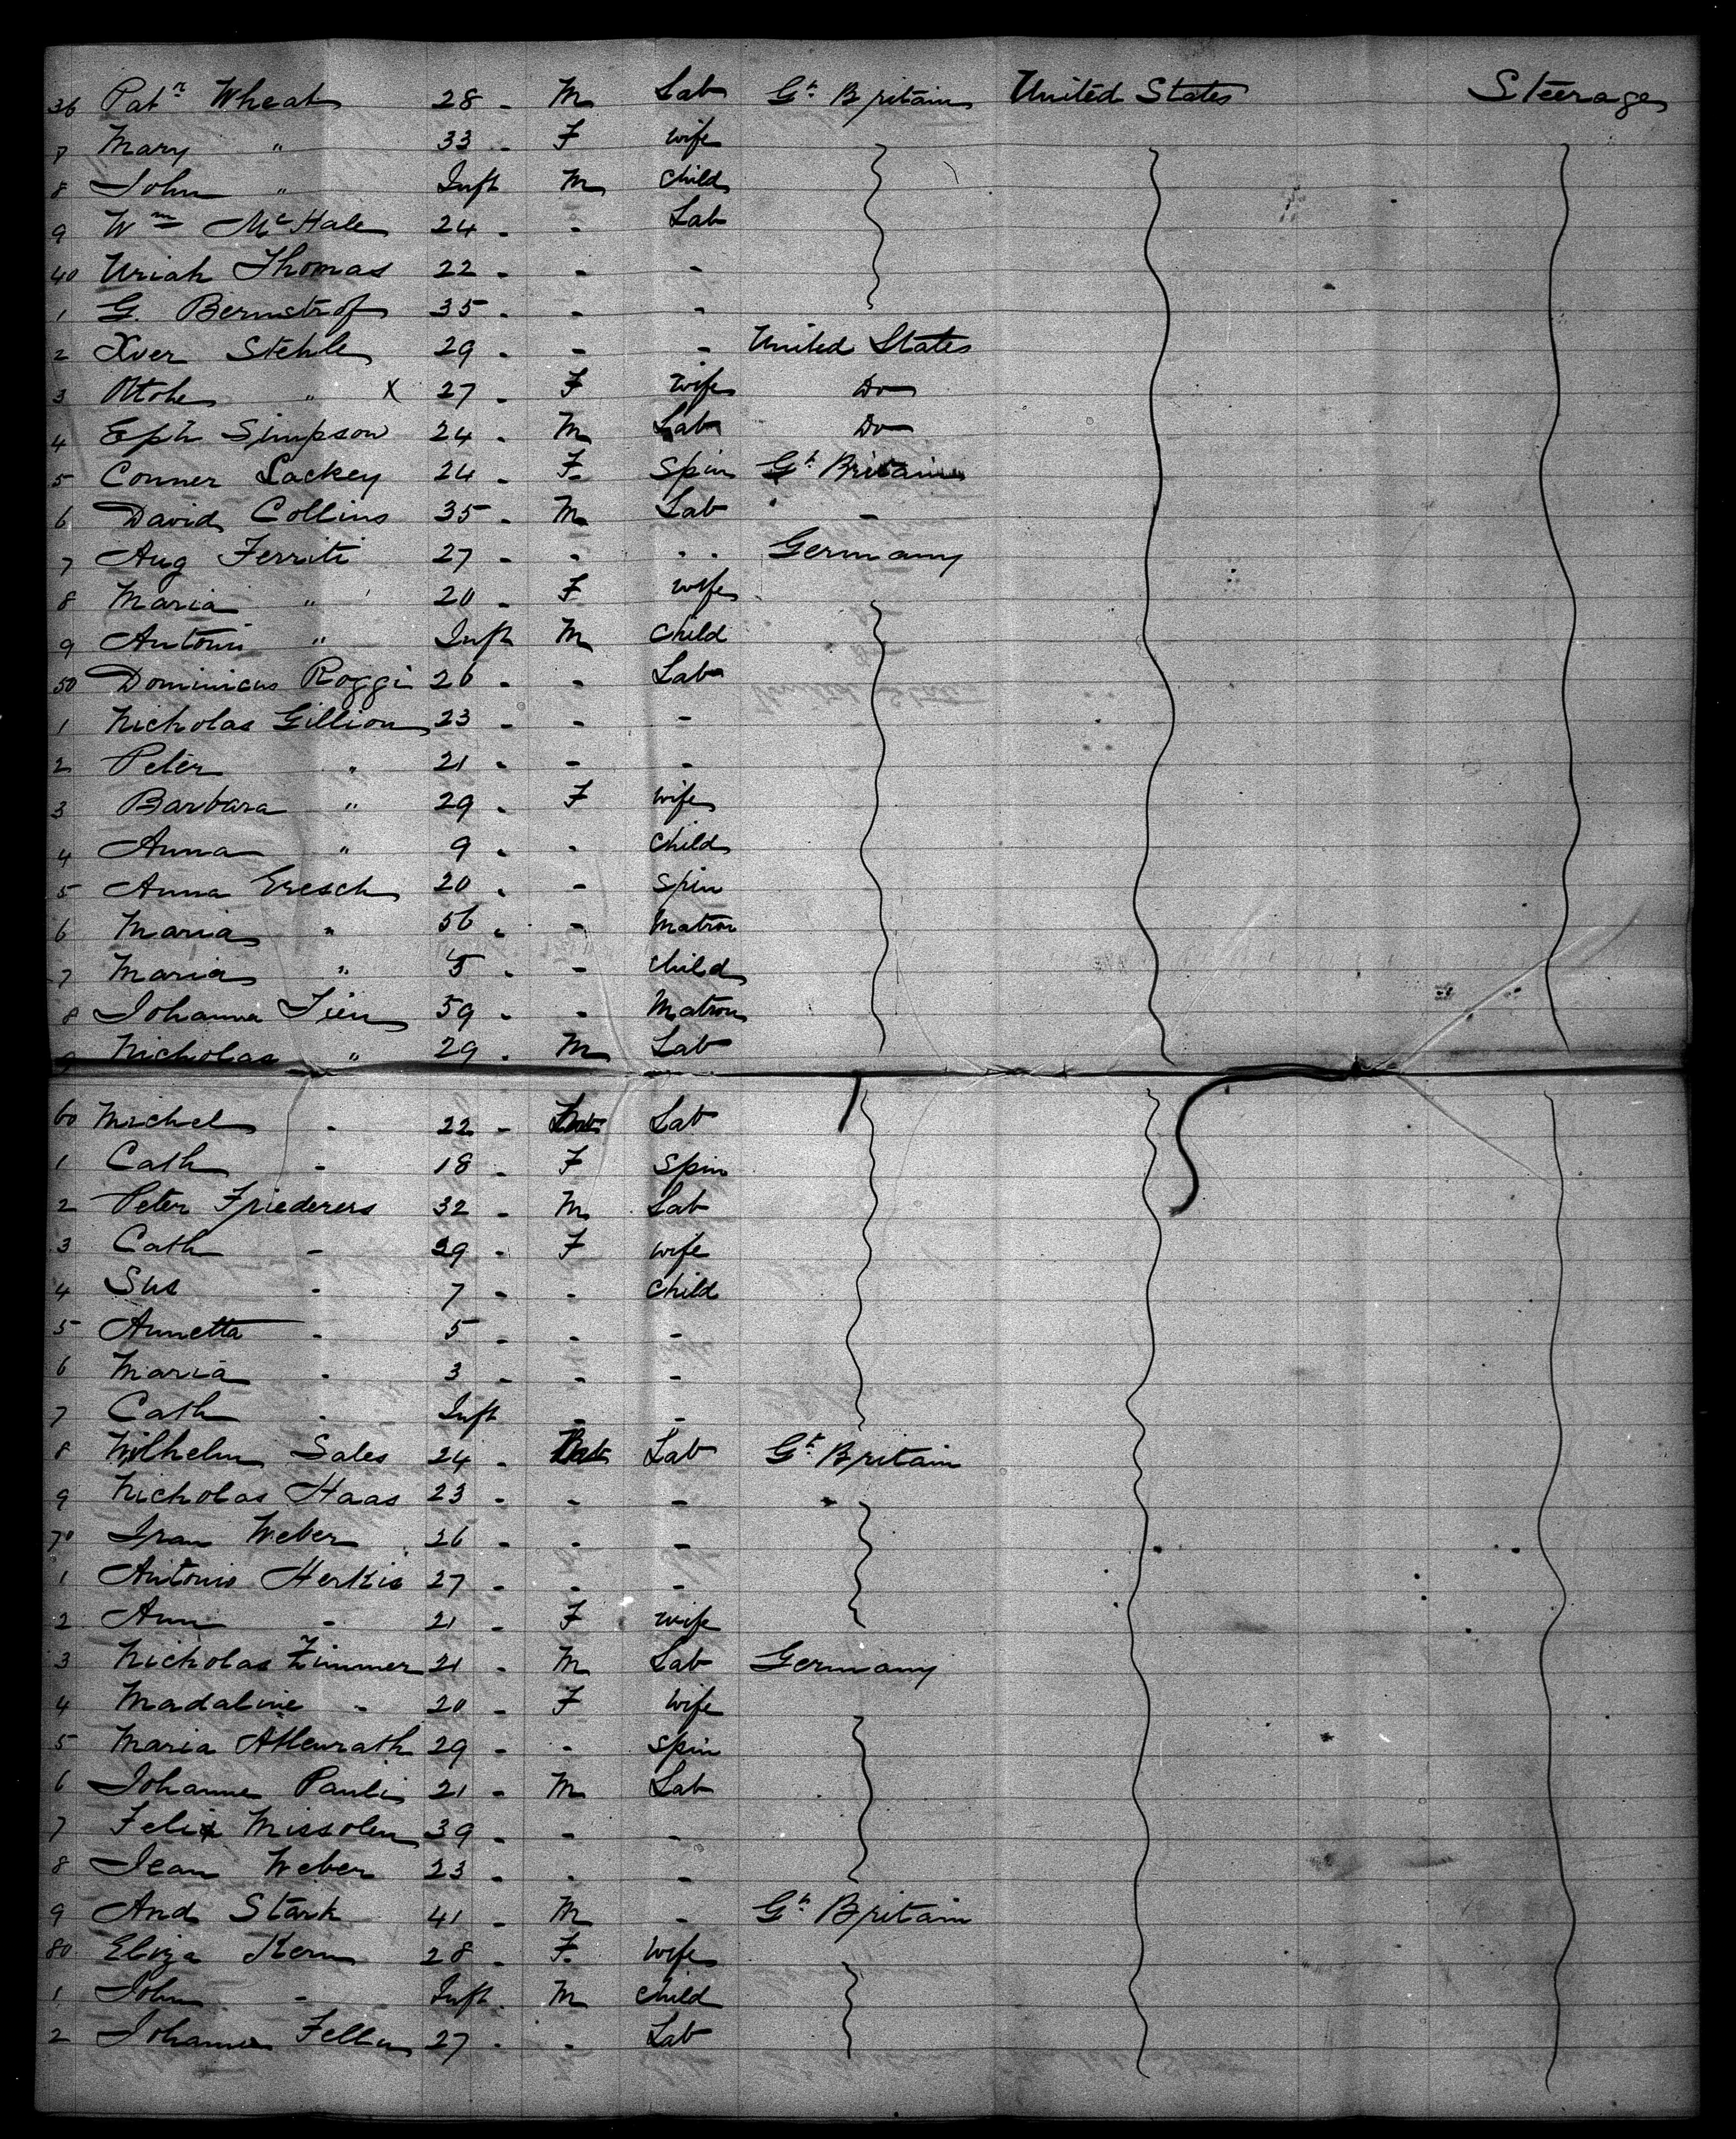 36 Patr Wheat 28 - M Lab Gt Britain United States Steerage
7 Mary " 33 - F wife
8 John " Inft M child
9 Wm McHale 24 - - Lab
40 Uriah Thomas 22 - - -
1 G. Bernstrof 35 - - -
2 Xver Stehle 29 - - - United States
3 Ottole " X 27 - F wife Do
4 Eph Simpson 24 - M Lab Do
5 Conner Lackey 24 - F Spin Gt Britain
6 David Collins 35 - M Lab -
7 Aug Ferriti 27 - - - - Germany
8 Maria " 20 - F wife
9 Antoni " Inft M child
50 Dominicus Roggi 26 - - Lab
1 Nicholas Gillion 23 - - -
2 Peter " 21 - - -
3 Barbara " 29 - F wife
4 Anna " 9 - - child
5 Anna Eresch 20 - - spin
6 Maria " 56 - - Matron
7 Maria " 5 - - child
8 Johanna Fien 59 - - Matron
9 Nicholas " 29 - M Lab
60 Michel - 22 - Lab
1 Cath - 18 - F spin
2 Peter Friederers 32 - M Lab
3 Cath - 29 - F wife
4 Sus - 7 - - child
5 Annetta - 5 - - -
6 Maria - 3 - - -
7 Cath - Inft - -
8 Wilhelm Sales 24 - Lab Gt Britain
9 Nicholas Haas 23 - - -
70 Weber 26 - - -
1 Antonio Herkis 27 - - -
2 Ann - 21 - F wife
3 Nicholas Zimmer 21 - M Lab Germany
4 Madaline - 20 - F wife
5 Maria 29 - - spin
6 Johanne Pauli 21 - M Lab
7 Felix Missolen 39 - - -
8 Jean Weber 23 - - -
9 And Stark 41 - M - Gt Britain
80 Eliza Kern 28 - F wife
1 John - Inft - M child
2 Johanna 27 - - Lab